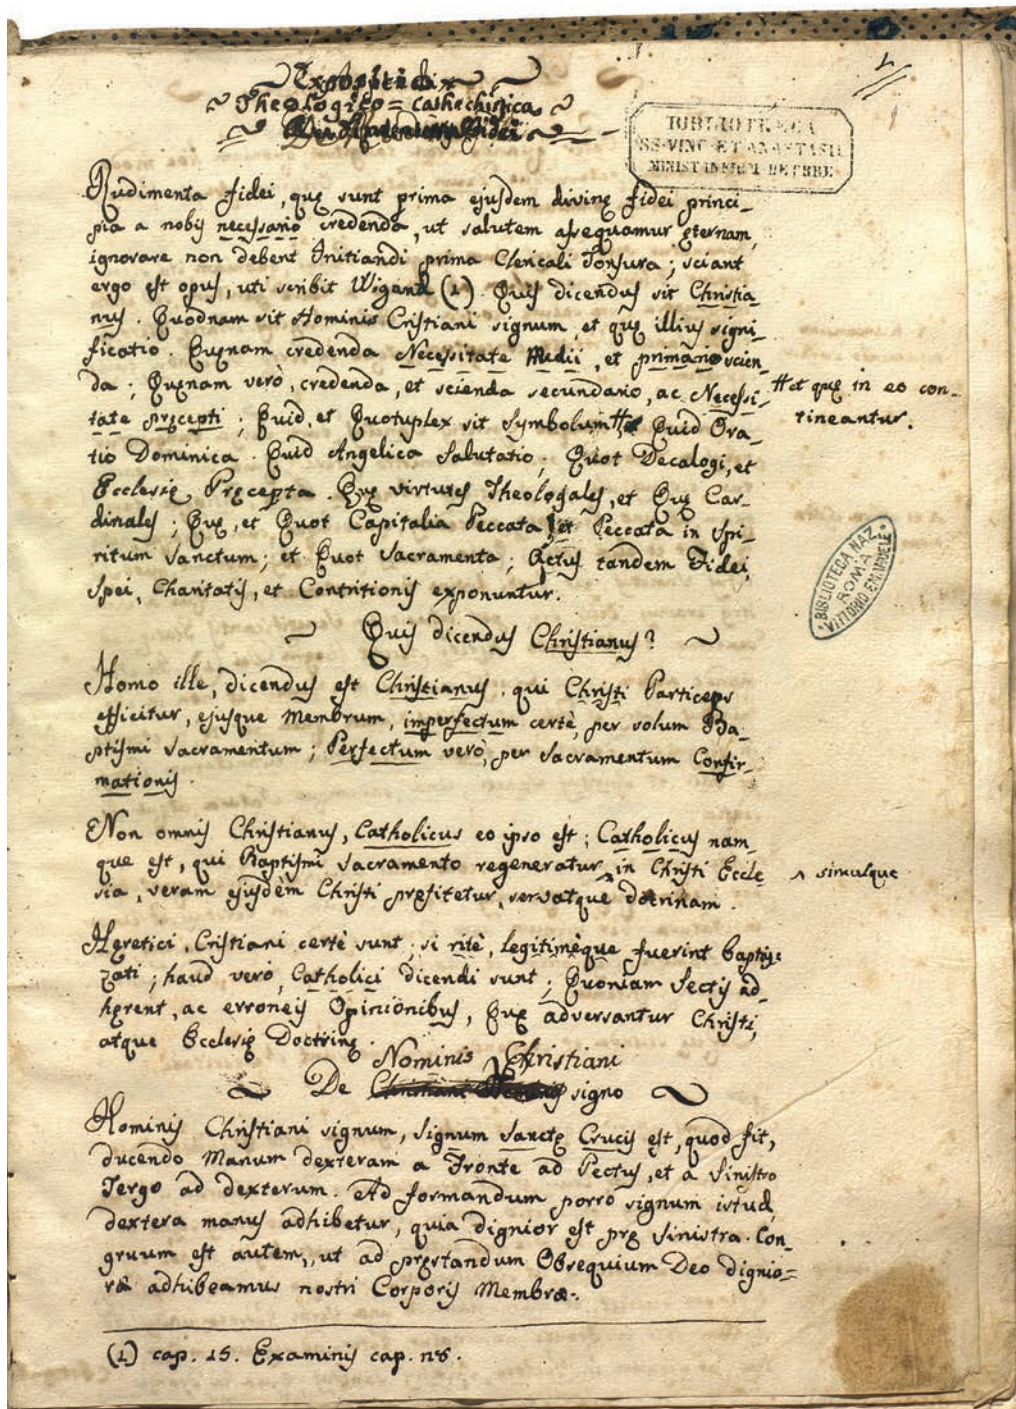 Theologico = Cathechistica
1
BIBLIOTHECA
SS. VINC. ET ANASTASII
Rudimenta fidei, quę sunt prima ejusdem divinę fidei princi-
pia a nobis necessario credenda, ut salutem assequamur ęternam,
ignorare non debent Initiandi prima Clericali Tonsura; sciant
ergo est opus, uti scribit Wigand (1). Quis dicendus sit Christia-
nus. Quodnam sit Hominis Cristiani signum, et quę illius signi-
ficatio. Quęnam credenda Necessitate Medii, et primario scien-
da; Quęnam verò, credenda, et scienda secundario, ac Necessi-
tate pręcepti; Quid, et Quotuplex sit Symbolum # Quid Ora-
# et quę in eo con-
tineantur.
tio Dominica. Quid Angelica Salutatio; Quot Decalogi, et
Ecclesię Pręcepta. Quę virtutes Theologales, et Quę Car-
dinales; Quę, et Quot Capitalia Peccata, et Peccata in Spi-
ritum Sanctum; et Quot Sacramenta; Actus tandem Fidei,
Spei, Charitatis, et Contritionis exponuntur.
BIBLIOTECA NAZ.
ROMA
VITTORIO EMANUELE
Quis dicendus Christianus?
Homo ille, dicendus est Christianus, qui Christi Particeps
efficitur, ejusque Membrum, imperfectum certè, per solum Ba-
ptismi Sacramentum; Perfectum verò, per Sacramentum Confir-
mationis.
Non omnis Christianus, Catholicus eo ipso est; Catholicus nam-
que est, qui Baptismi Sacramento regeneratur ^ in Christi Eccle-
^ simulque
sia, veram ejusdèm Christi profitetur, servatque doctrinam.
Hęretici, Cristiani certè sunt; si ritè, legitimèque fuerint baptiz=
zati; haud verò, Catholici dicendi sunt; Quoniam Sectis ad-
hęrent, ac erroneis Opinionibus, Quę adversantur Christi,
atque Ecclesię Doctrinę.
Nominis Christiani
De signo
Hominis Christiani signum, Signum Sanctę Crucis est, quod fit,
ducendo Manum dexteram a Fronte ad Pectus, et a Sinistro
Tergo ad dexterum. Ad formandum porrò signum istud,
dextera manus adhibetur, quia dignior est prę Sinistra. Con-
gruum est autem, ut ad pręstandum Obsequium Deo dignio=
ra adhibeamus nostri Corporis Membra.
(1) cap. 15. Examinis cap. n8.